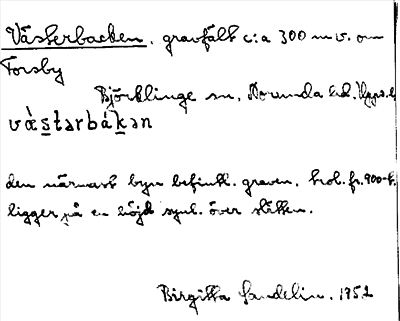 Västerbacken, gravfält c:a 300 m v. om
Forsby
Björklinge sn, Norunda hd. Upps. l.
væ̀stərbákən
den närmast byn befintl. graven, trol. fr. 900-t.
ligger på en höjd synl. över slätten.
Birgitta Sandelin. 1952